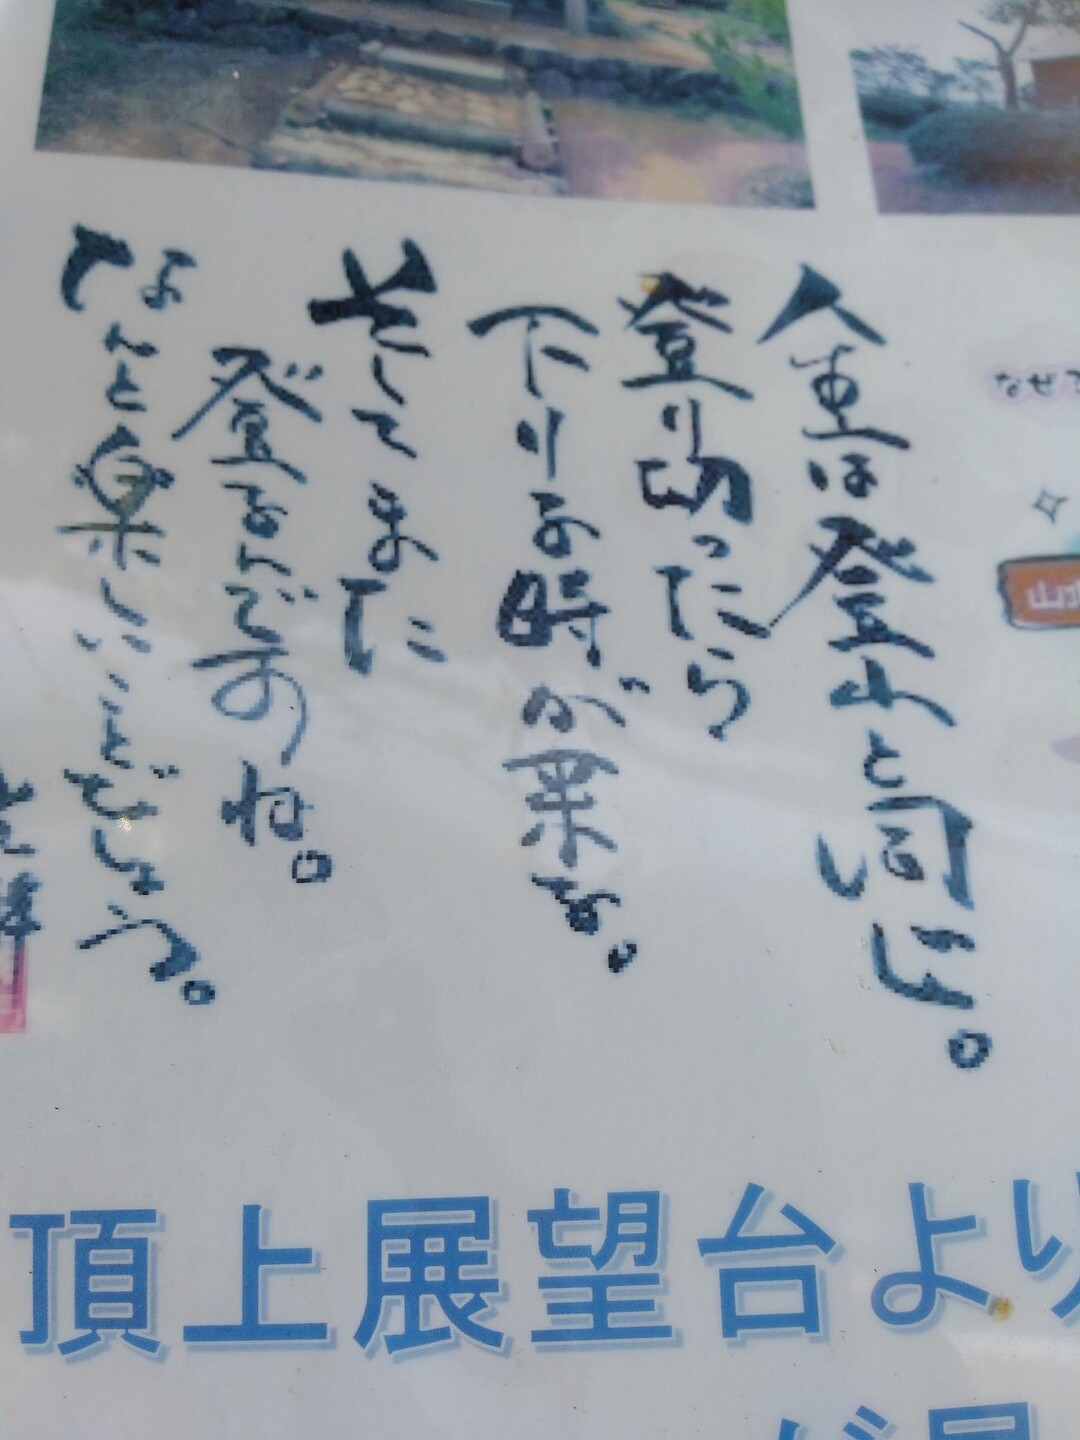 なぜ
山
人生は登山と同じ。
登り切ったら
下りる時が来る。
そしてまた
登るんですね。
なんと楽しいことでしょう。
頂上展望台より